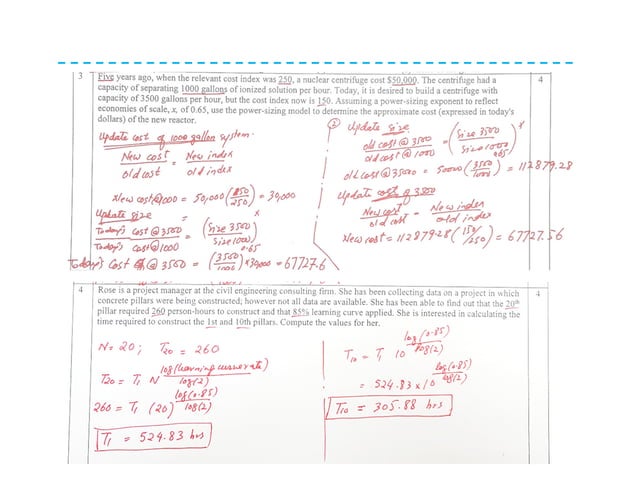 3
Five years ago, when the relevant cost index was 250, a nuclear centrifuge cost $50,000. The centrifuge had a
capacity of separating 1000 gallons of ionized solution per hour. Today, it is desired to build a centrifuge with
capacity of 3500 gallons per hour, but the cost index now is 150. Assuming a power-sizing exponent to reflect
economies of scale, x, of 0.65, use the power-sizing model to determine the approximate cost (expressed in today's
dollars) of the new reactor.
4
Update cost of 1000 gallon system.
New cost / old cost = New index / old index
New cost@1000 = 50,000 (150/250) = 30,000
Update size
Today's cost @ 3500 / Today's cost @ 1000 = (Size 3500 / Size 1000)^x
Today's cost @ 3500 = (3500/1000)^0.65 × 30,000 = 67727.6
② Update size
old cost @ 3500 / old cost @ 1000 = (Size 3500 / Size 1000)^x
old cost @ 3500 = 50000 (3500/1000)^0.65 = 112879.28
Update cost of 3500
New cost / old cost = New index / old index
New cost = 112879.28 (150/250) = 67727.56
4
Rose is a project manager at the civil engineering consulting firm. She has been collecting data on a project in which
concrete pillars were being constructed; however not all data are available. She has been able to find out that the 20th
pillar required 260 person-hours to construct and that 85% learning curve applied. She is interested in calculating the
time required to construct the 1st and 10th pillars. Compute the values for her.
4
N = 20 ; T20 = 260
T20 = T1 N^log(learning curve rate)/log(2)
260 = T1 (20)^log(0.85)/log(2)
T1 = 524.83 hrs
T10 = T1 10^log(0.85)/log(2)
= 524.83 × 10^log(0.85)/log(2)
T10 = 305.88 hrs